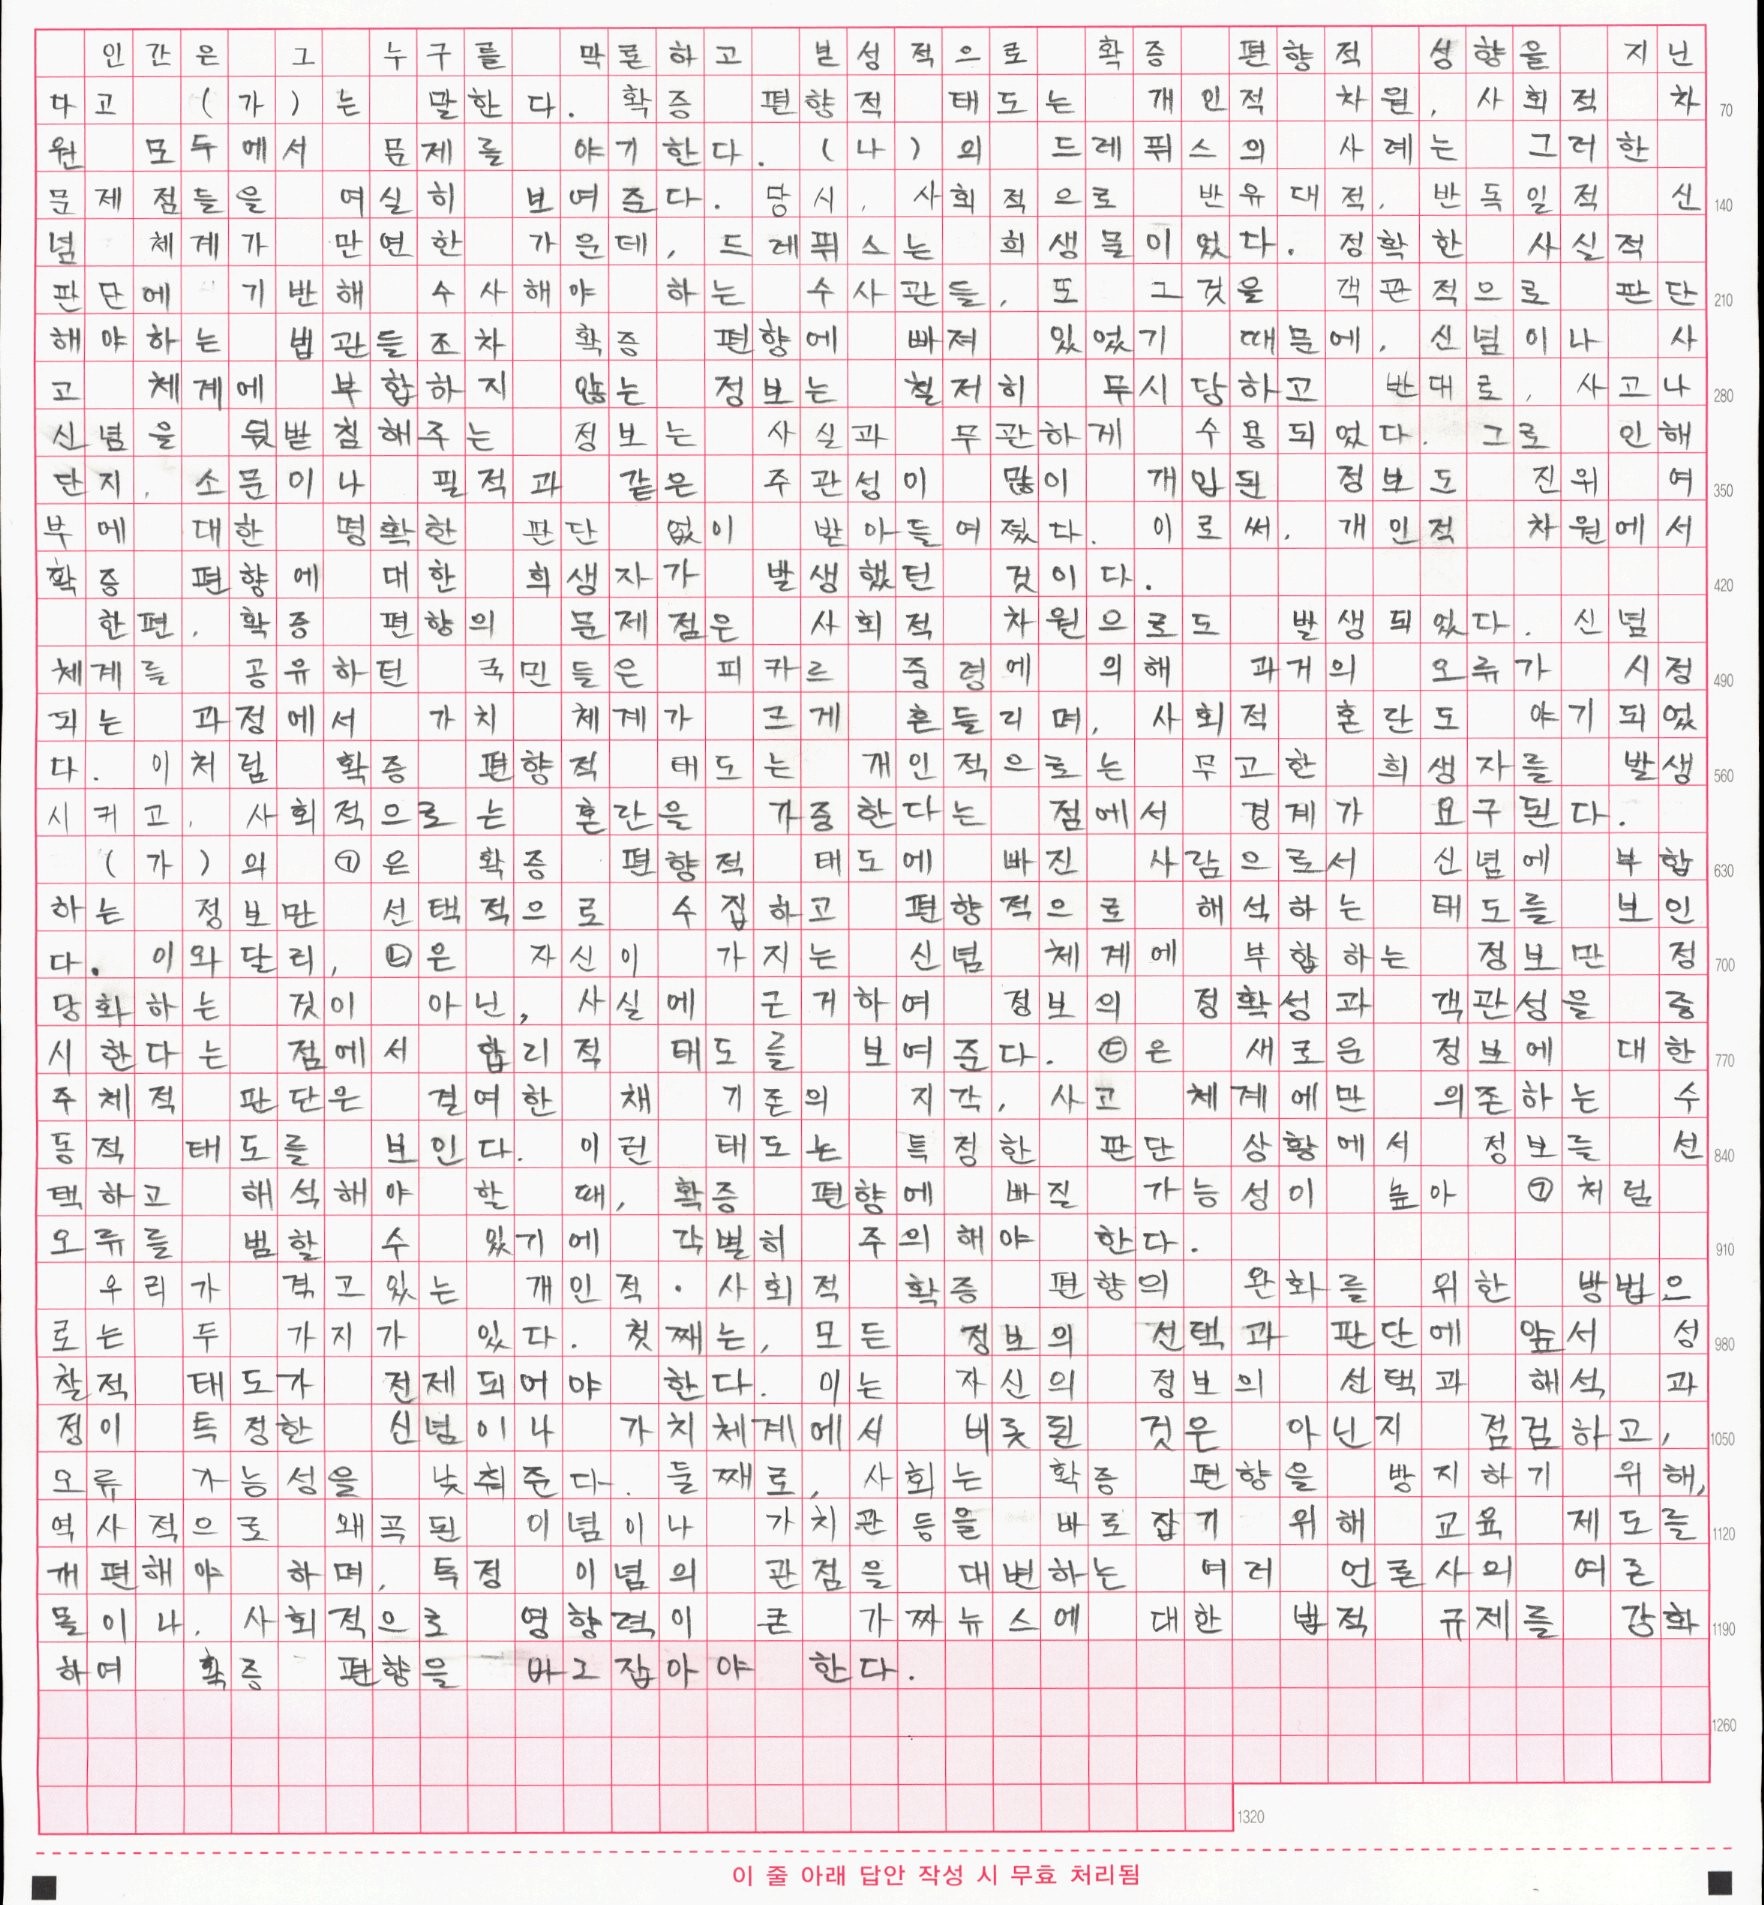 인간은 그 누구를 막론하고 본성적으로 확증 편향적 성향을 지닌
다고 (가)는 말한다. 확증 편향적 태도는 개인적 차원, 사회적 차
70
원 모두에서 문제를 야기한다. (나)의 드레퓌스의 사례는 그러한
문제점들을 여실히 보여준다. 당시, 사회적으로 반유대적, 반독일적 신
140
념 체계가 만연한 가운데, 드레퓌스는 희생물이었다. 정확한 사실적
판단에 기반해 수사해야 하는 수사관들, 또 그것을 객관적으로 판단
210
해야하는 법관들조차 확증 편향에 빠져 있었기 때문에, 신념이나 사
고 체계에 부합하지 않는 정보는 철저히 무시당하고 반대로, 사고나
280
신념을 뒷받침해주는 정보는 사실과 무관하게 수용되었다. 그로 인해
단지, 소문이나 필적과 같은 주관성이 많이 개입된 정보도 진위 여
350
부에 대한 명확한 판단 없이 받아들여졌다. 이로써, 개인적 차원에서
확증 편향에 대한 희생자가 발생했던 것이다.
420
한편, 확증 편향의 문제점은 사회적 차원으로도 발생되었다. 신념
체계를 공유하던 국민들은 피카르 중령에 의해 과거의 오류가 시정
490
되는 과정에서 가치 체계가 크게 흔들리며, 사회적 혼란도 야기되었
다. 이처럼 확증 편향적 태도는 개인적으로는 무고한 희생자를 발생
560
시키고, 사회적으로는 혼란을 가중한다는 점에서 경계가 요구된다.
(가)의 ㉠은 확증 편향적 태도에 빠진 사람으로서 신념에 부합
630
하는 정보만 선택적으로 수집하고 편향적으로 해석하는 태도를 보인
다. 이와달리, ㉡은 자신이 가지는 신념 체계에 부합하는 정보만 정
700
당화하는 것이 아닌, 사실에 근거하여 정보의 정확성과 객관성을 중
시한다는 점에서 합리적 태도를 보여준다. ㉢은 새로운 정보에 대한
770
주체적 판단은 결여한 채 기존의 지각, 사고 체계에만 의존하는 수
동적 태도를 보인다. 이런 태도는 특정한 판단 상황에서 정보를 선
840
택하고 해석해야 할 때, 확증 편향에 빠질 가능성이 높아 ㉠처럼
오류를 범할 수 있기에 각별히 주의해야 한다.
910
우리가 겪고있는 개인적·사회적 확증 편향의 완화를 위한 방법으
로는 두 가지가 있다. 첫째는, 모든 정보의 선택과 판단에 앞서 성
980
찰적 태도가 전제되어야 한다. 이는 자신의 정보의 선택과 해석 과
정이 특정한 신념이나 가치체계에서 비롯된 것은 아닌지 점검하고,
1050
오류 가능성을 낮춰준다. 둘째로, 사회는 확증 편향을 방지하기 위해,
역사적으로 왜곡된 이념이나 가치관등을 바로잡기 위해 교육 제도를
1120
개편해야 하며, 특정 이념의 관점을 대변하는 여러 언론사의 여론
몰이나, 사회적으로 영향력이 큰 가짜뉴스에 대한 법적 규제를 강화
1190
하여 확증 편향을 바로잡아야 한다.
1260
1320
이 줄 아래 답안 작성 시 무효 처리됨